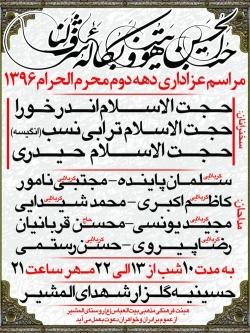 حب الحسین یتهوون کمائه شرفنا
مراسم عزاداری دهه دوم محرم الحرام ۱۳۹۶
سخنرانان:
حجت الاسلام اندرخورا
حجت الاسلام ترابی نسب (انگیسه)
حجت الاسلام حیدری
مداحان:
کربلایی سلمان پاینده - کربلایی مجتبی نامور
کربلایی کاظم اکبری - کربلایی محمد شیدایی
کربلایی مجید یونسی - حاج محسن قربانیان
کربلایی رضا پیروی - کربلایی حسن رستمی
به مدت ۱۰ شب از ۱۳ الی ۲۲ مهر ساعت ۲۱
حسینیه گلزار شهدای المشیر
هیئت فرهنگی مذهبی بیت العباس (ع) روستای المشیر
از عموم برادران و خواهران دعوت بعمل می آید